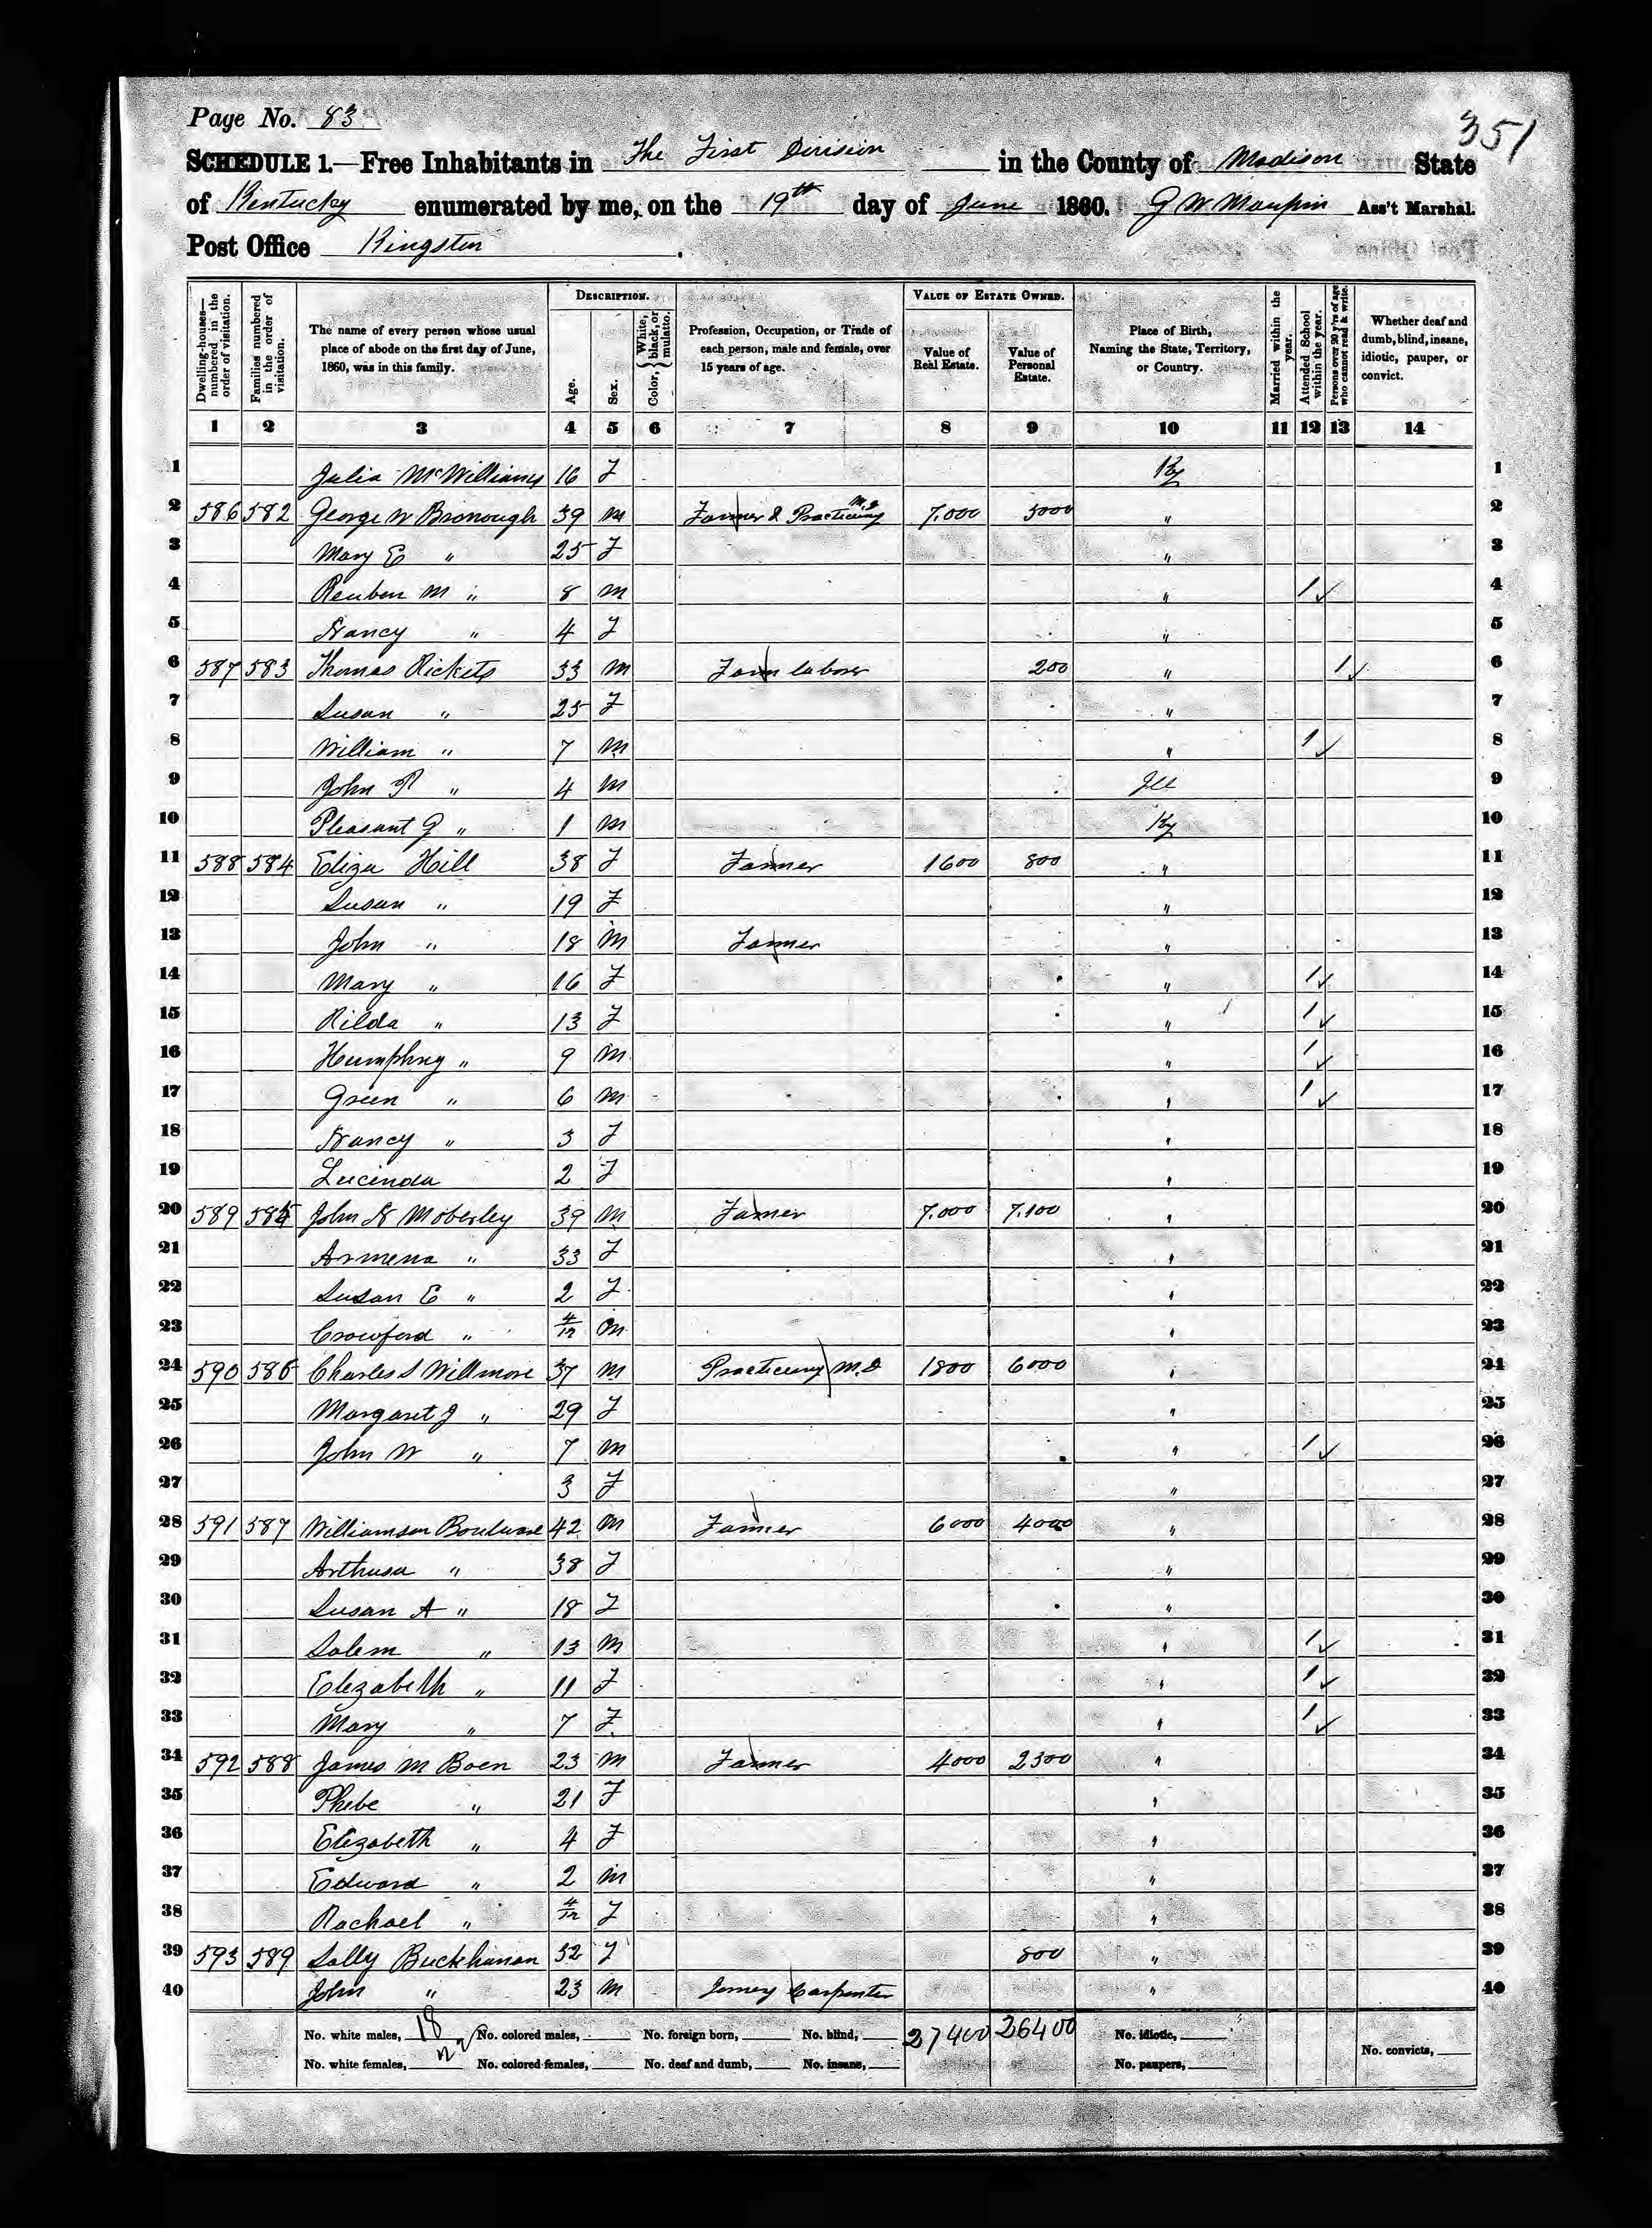 Page No. 83
351
SCHEDULE 1.—Free Inhabitants in The First Division in the County of Madison State
of Kentucky enumerated by me, on the 19th day of June 1860. G W Maupin Ass't Marshal.
Post Office Kingston.
Dwelling-houses—numbered in the order of visitation.
Families numbered in the order of visitation.
The name of every person whose usual place of abode on the first day of June, 1860, was in this family.
DESCRIPTION.
Age.
Sex.
Color, { White, black, or mulatto.
Profession, Occupation, or Trade of each person, male and female, over 15 years of age.
VALUE OF ESTATE OWNED.
Value of Real Estate.
Value of Personal Estate.
Place of Birth, Naming the State, Territory, or Country.
Married within the year.
Attended School within the year.
Persons over 20 y'rs of age who cannot read & write.
Whether deaf and dumb, blind, insane, idiotic, pauper, or convict.
1 2 3 4 5 6 7 8 9 10 11 12 13 14
1 Julia McWilliams 16 F Ky 1
2 586 582 George W Bronough 39 M Farmer & Practicing M.D 7,000 5000 " 2
3 Mary E " 25 F " 3
4 Reuben M " 8 M " 1 ✓ 4
5 Nancy " 4 F " 5
6 587 583 Thomas Rickets 33 M Farm labor 200 " 1 ✓ 6
7 Susan " 25 F " 7
8 William " 7 M " 1 ✓ 8
9 John P " 4 M Ill 9
10 Pleasant G " 1 M Ky 10
11 588 584 Eliza Hill 38 F Farmer 1600 800 " 11
12 Susan " 19 F " 12
13 John " 18 M Farmer " 13
14 Mary " 16 F " 1 ✓ 14
15 Rilda " 13 F " 1 ✓ 15
16 Humphrey " 9 M " 1 ✓ 16
17 Green " 6 M " 1 ✓ 17
18 Nancy " 3 F " 18
19 Lucinda 2 F " 19
20 589 585 John N Moberley 39 M Farmer 7.000 7.100 " 20
21 Armena " 33 F " 21
22 Susan E " 2 F " 22
23 Crowford " 4/12 M " 23
24 590 586 Charles S Willmore 37 M Practicing M.D 1800 6000 " 24
25 Margaret J " 29 F " 25
26 John W " 7 M " 1 ✓ 26
27 3 F " 27
28 591 587 Williamson Boulware 42 M Farmer 6000 4000 " 28
29 Arthusa " 38 F " 29
30 Susan A " 18 F " 30
31 Salem " 13 M " 1 ✓ 31
32 Elizabeth " 11 F " 1 ✓ 32
33 Mary " 7 F " 1 ✓ 33
34 592 588 James M Boen 23 M Farmer 4000 2300 " 34
35 Phebe " 21 F " 35
36 Elizabeth " 4 F " 36
37 Edward " 2 M " 37
38 Rachael " 4/12 F " 38
39 593 589 Sally Buckhanan 52 F 800 " 39
40 John " 23 M Jorney Carpenter " 40
No. white males, 18 No. colored males, No. foreign born, No. blind, 27400 26400 No. idiotic,
No. white females, 22 No. colored females, No. deaf and dumb, No. insane, No. paupers, No. convicts,